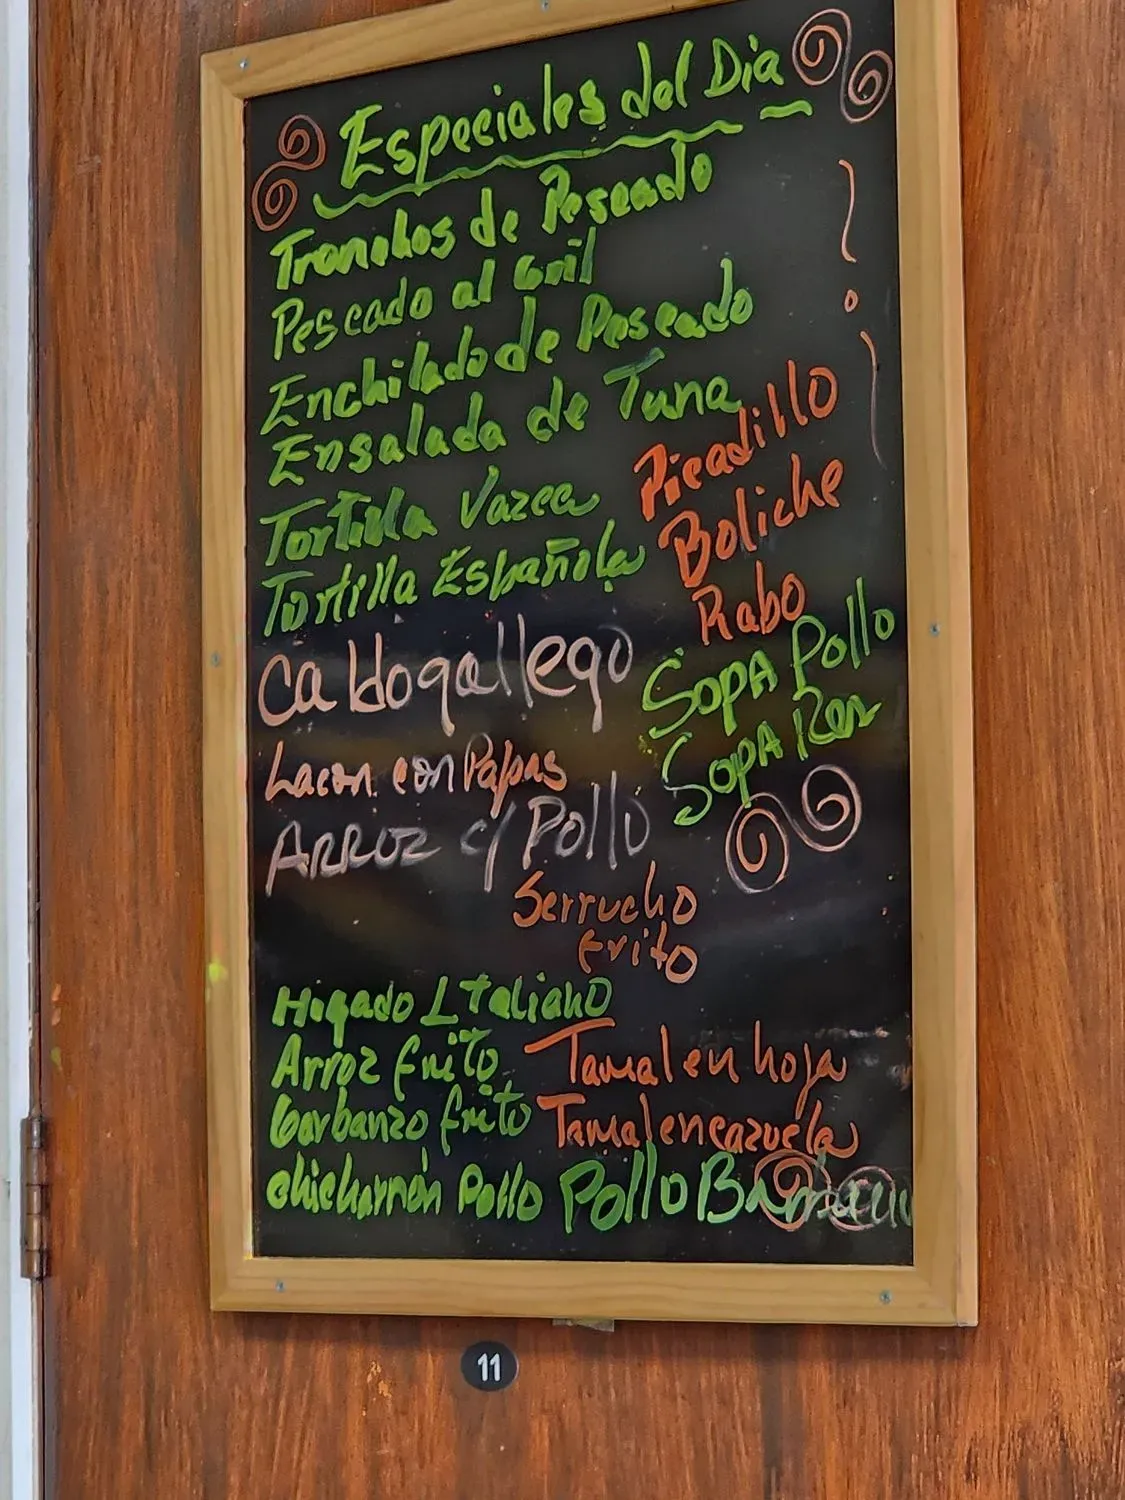 Especiales del Dia
Tronchos de Pescado
Pescado al Gril
Enchilado de Pescado
Ensalada de Tuna
Tortilla Vazca
Tortilla Española
Picadillo
Boliche
Rabo
Sopa Pollo
Sopa Res
Caldo gallego
Lacon con Papas
ARROZ c/ Pollo
Serrucho
frito
Higado Italiano
Arroz frito
Garbanzo frito
chicharrón Pollo
Tamal en hoja
Tamal en cazuela
Pollo
11